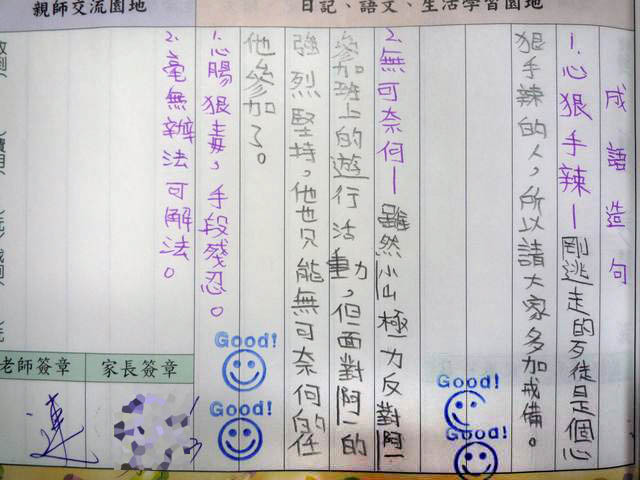 親師交流園地
日記、語文、生活學習園地
成語造句
1.心狠手辣—剛逃走的歹徒是個心
狠手辣的人,所以請大家多加戒備。
2.無可奈何—雖然小山極力反對阿一
參加班上的遊行活動,但面對阿一的
強烈堅持,他也只能無可奈何的任
他參加了。
1.心腸狠毒,手段殘忍。
2.毫無辦法可解法。
Good!
Good!
Good!
Good!
家長簽章
老師簽章